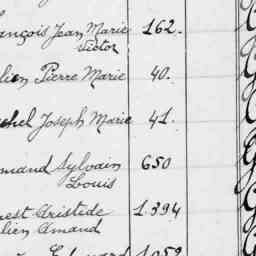 ançois Jean Marie 162.
Victor
lien Pierre Marie 40.
chel Joseph Marie 41.
mand Sylvain 650
Louis
nest Aristide 1.394
lien Amand
Edouard 1052